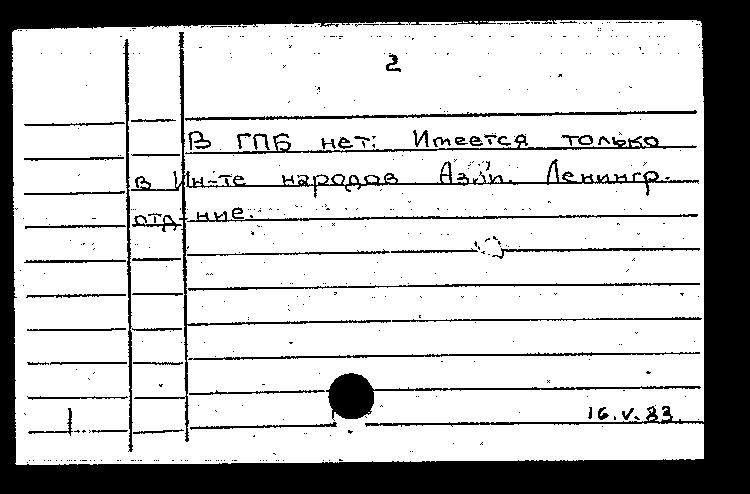 2
В ГПБ нет: Имеется только
в Ин-те народов Азии. Ленингр.
отд-ние.
16.V.83.